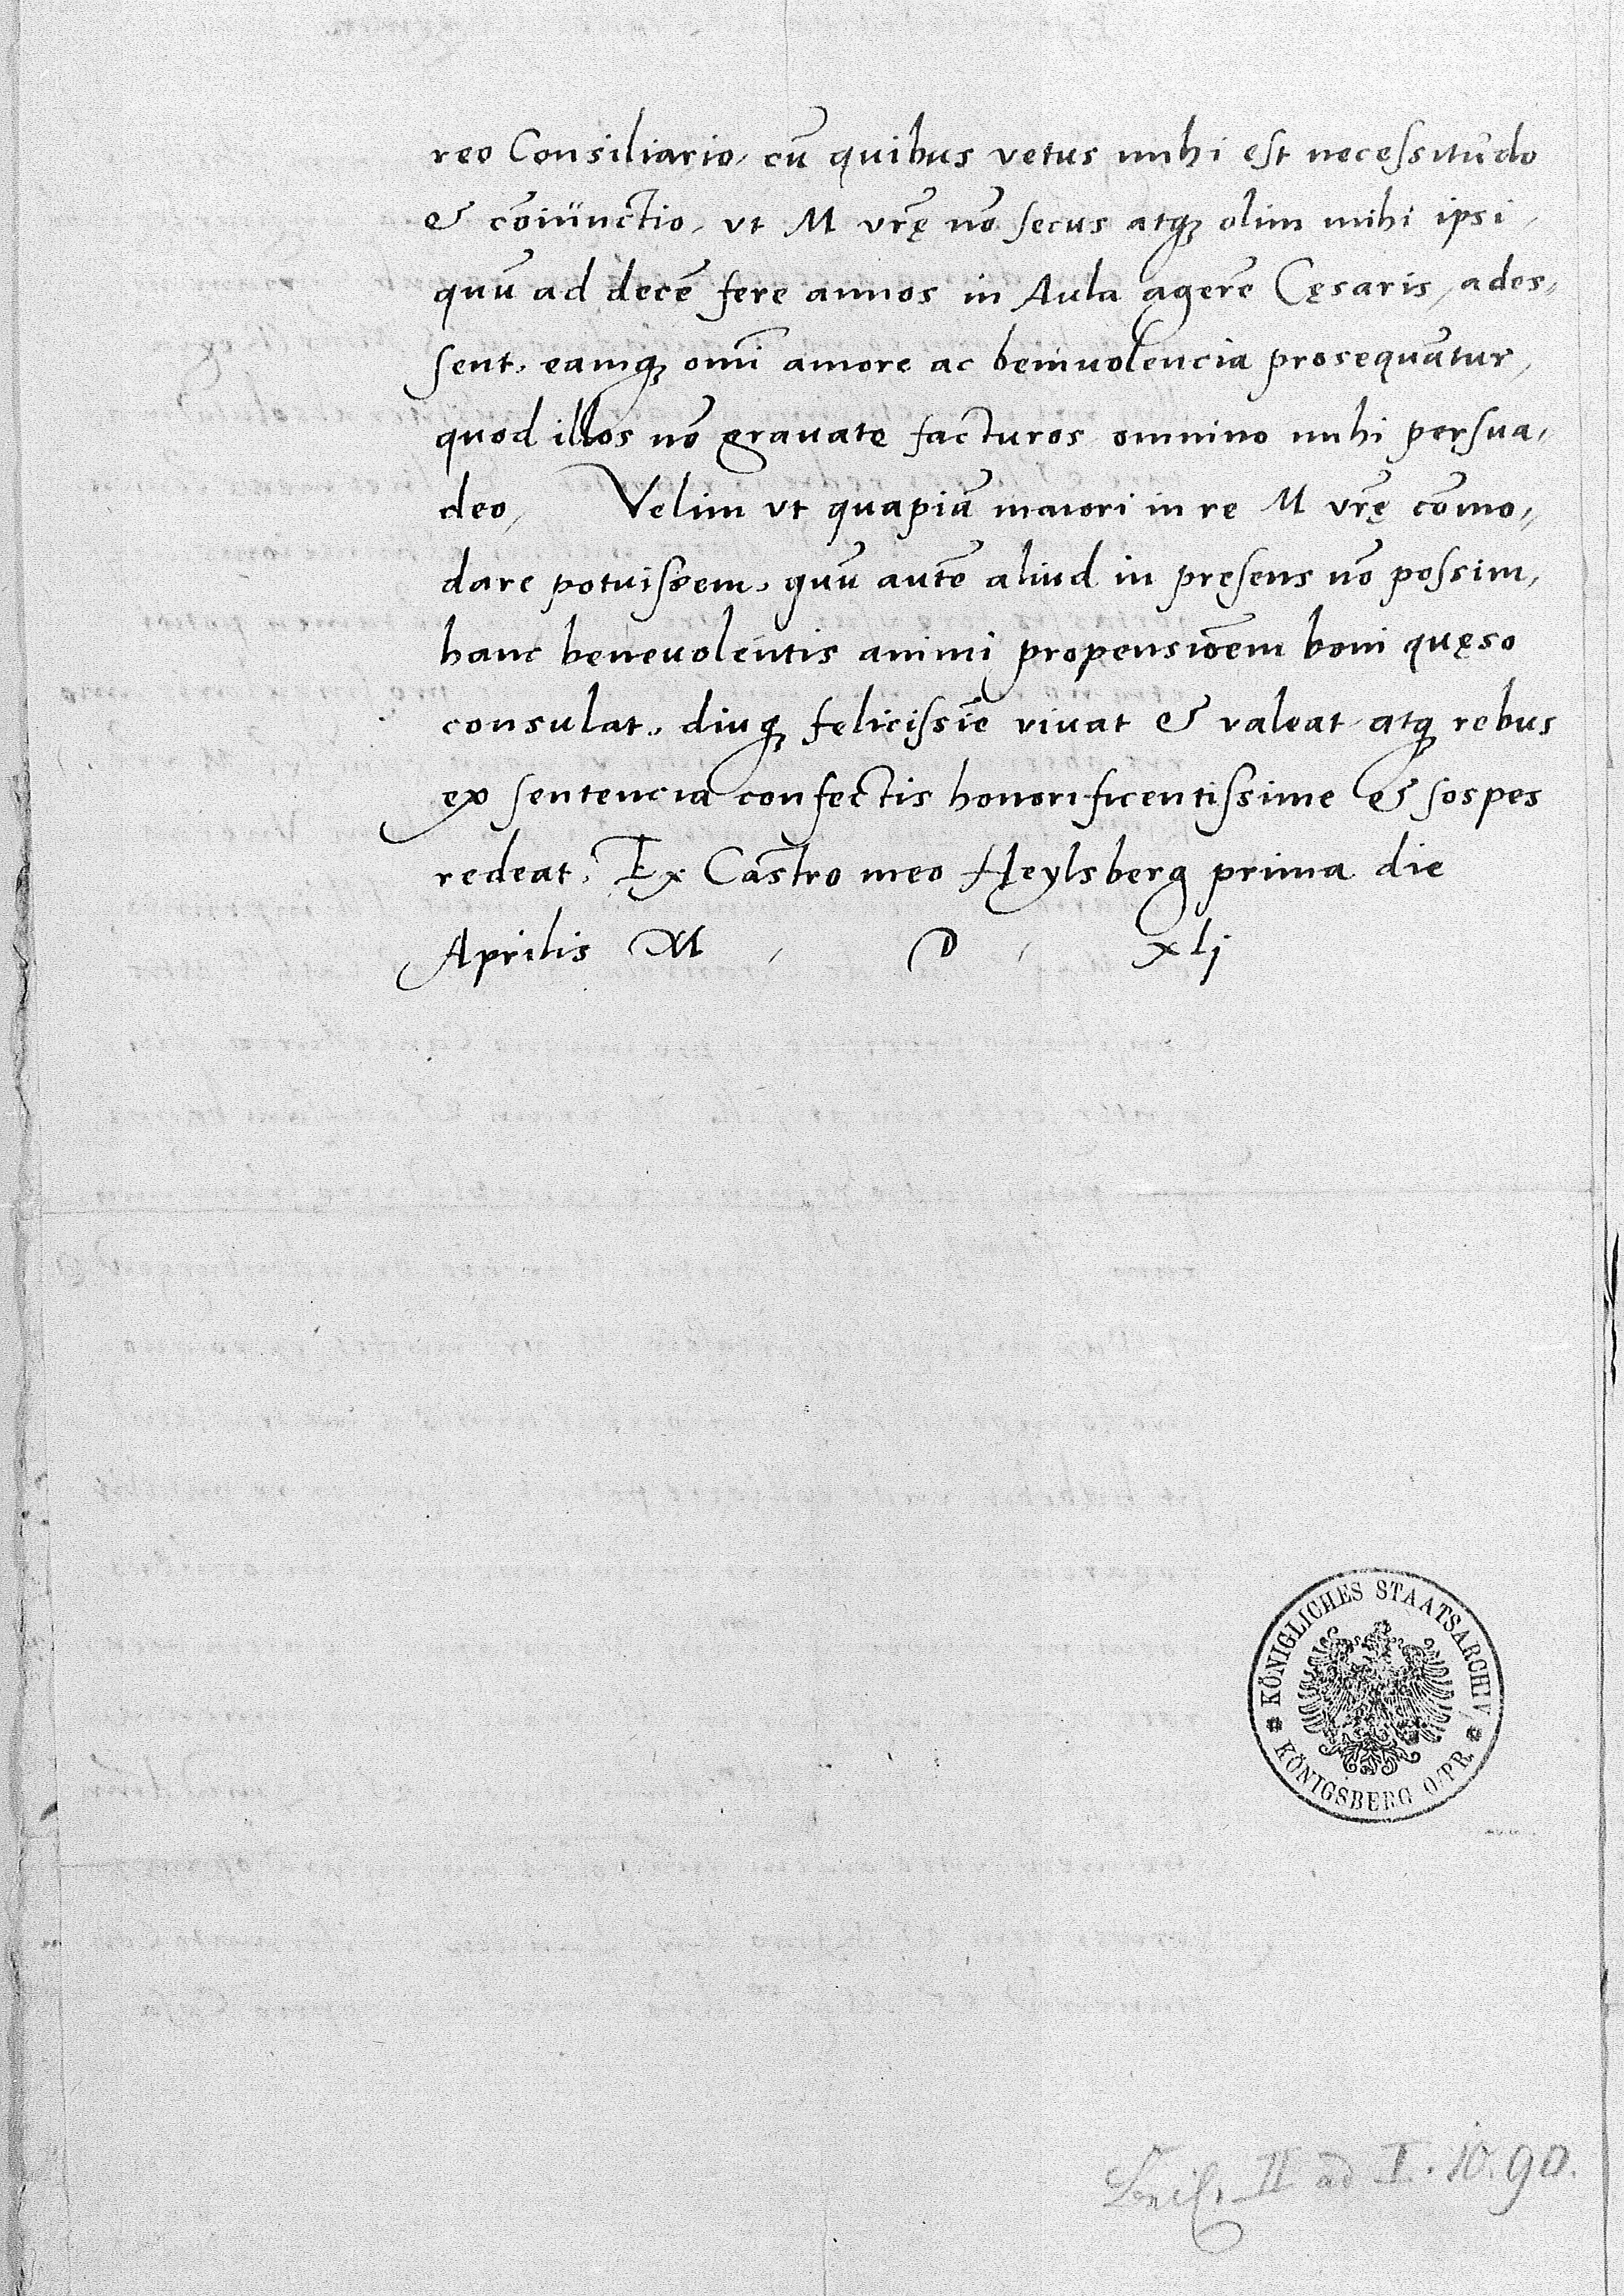 reo Consiliario, cū quibus vetus mihi est necessitudo
& cōiunctio, vt M vrę nō secus atq̢ olim mihi ipsi,
quū ad decē fere annos in Aula agerē Cęsaris, ades„
sent, eamq̢ omī amore ac beniuolencia prosequātur,
quod illos nō grauate facturos omnino mihi persua„
deo, Velim vt quapiā maiori in re M vrę cōmo„
dare potuissem, quū autē aliud in pręsens nō possim,
hanc beneuolentis animi propensiōem boni quęso
consulat, diuq̢ felicissīe viuat & valeat atq̢ rebus
ex sentencia confectis honorificentissime & sospes
redeat, Ex Castro meo Heylsberg prima die
Aprilis M , D , xlj
KÖNIGLICHES STAATSARCHIV
KÖNIGSBERG O/PR.
II ad I. 10. 90.